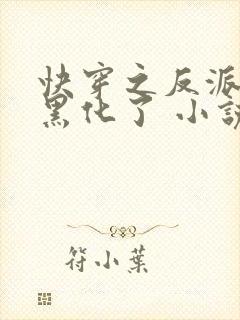 快穿之反派
黑化了 小说
符小葉